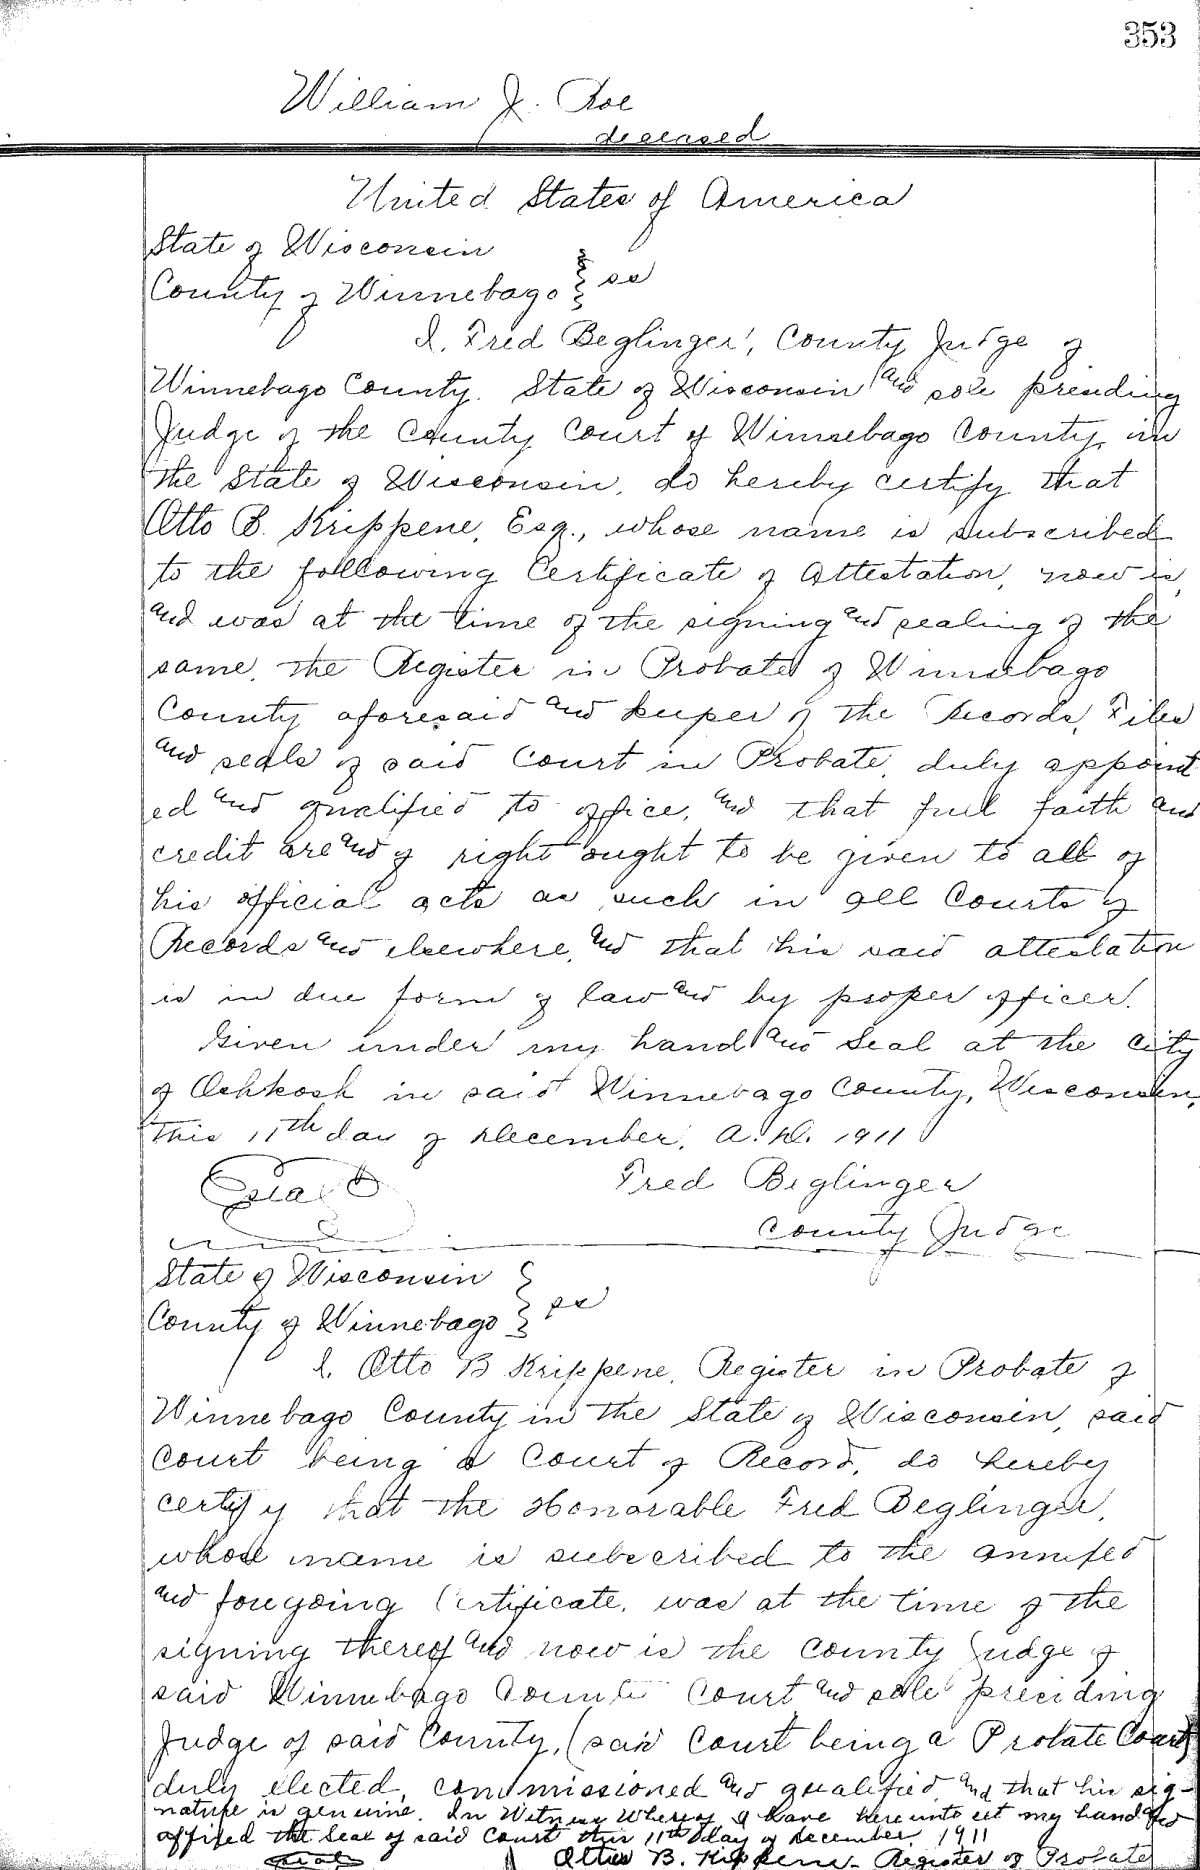 353
William J. Roe
deceased
United States of America
State of Wisconsin
County of Winnebago } ss
I, Fred Beglinger, County Judge of
Winnebago County, State of Wisconsin and sole presiding
Judge of the County Court of Winnebago County, in
the State of Wisconsin, do hereby certify that
Otto B. Krippene, Esq., whose name is subscribed
to the following Certificate of Attestation, now is,
and was at the time of the signing and sealing of the
same, the Register in Probate of Winnebago
County aforesaid and keeper of the Records, Files
and seals of said Court in Probate, duly appoint
ed and qualified to office, and that full faith and
credit are and of right ought to be given to all of
his official acts as such in all Courts of
Records and elsewhere, and that his said attestation
is in due form of law and by proper officer.
Given under my hand and Seal at the City
of Oshkosh in said Winnebago County, Wisconsin,
this 11th day of December, A.D. 1911
Seal
Fred Beglinger
County Judge
State of Wisconsin
County of Winnebago } ss
I, Otto B Krippene, Register in Probate of
Winnebago County in the State of Wisconsin, said
Court being a Court of Record, do hereby
certify that the Honorable Fred Beglinger,
whose name is subscribed to the annexed
and foregoing Certificate, was at the time of the
signing thereof and now is the County Judge of
said Winnebago County Court and sole presiding
Judge of said County, (said Court being a Probate Court)
duly elected, commissioned and qualified, and that his sig-
nature is genuine. In Witness Whereof I have hereunto set my hand and
affixed the Seal of said Court this 11th day of December, 1911
Seal Otto B. Krippene - Register of Probate